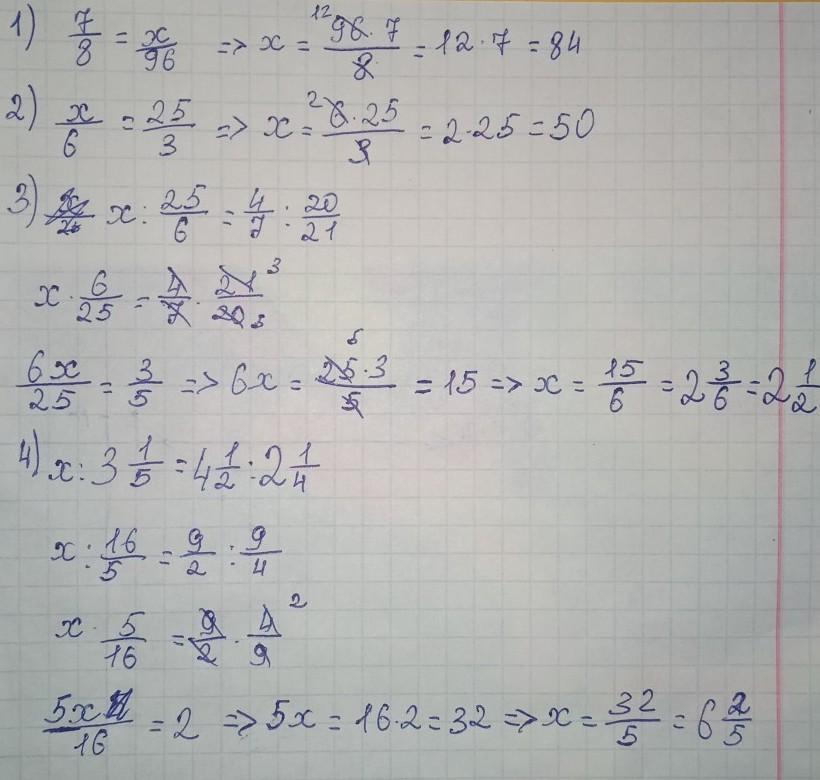 1) 7/8 = x/96 => x = 96·7/8 12 = 12·7 = 84
2) x/6 = 25/3 => x = 6·25/3 2 = 2·25 = 50
3) x : 25/6 = 4/7 : 20/21
x · 6/25 = 4/7 · 21/20 3 5
6x/25 = 3/5 => 6x = 25·3/5 5 = 15 => x = 15/6 = 2 3/6 = 2 1/2
4) x : 3 1/5 = 4 1/2 : 2 1/4
x : 16/5 = 9/2 : 9/4
x · 5/16 = 9/2 · 4/9 2
5x/16 = 2 => 5x = 16·2 = 32 => x = 32/5 = 6 2/5